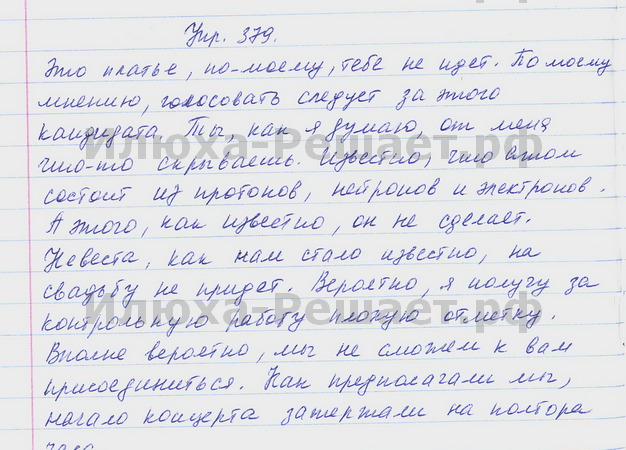 Упр. 379.
Это платье, по-моему, тебе не идет. По моему
мнению, голосовать следует за этого
кандидата. Ты, как я думаю, от меня
что-то скрываешь. Известно, что атом
состоит из протонов, нейтронов и электронов.
А этого, как известно, он не сделает.
Невеста, как нам стало известно, на
свадьбу не придет. Вероятно, я получу за
контрольную работу плохую отметку.
Вполне вероятно, мы не сможем к вам
присоединиться. Как предполагали мы,
начало концерта задержали на полтора
часа
Илюха-Решает.рф
Илюха-Решает.рф